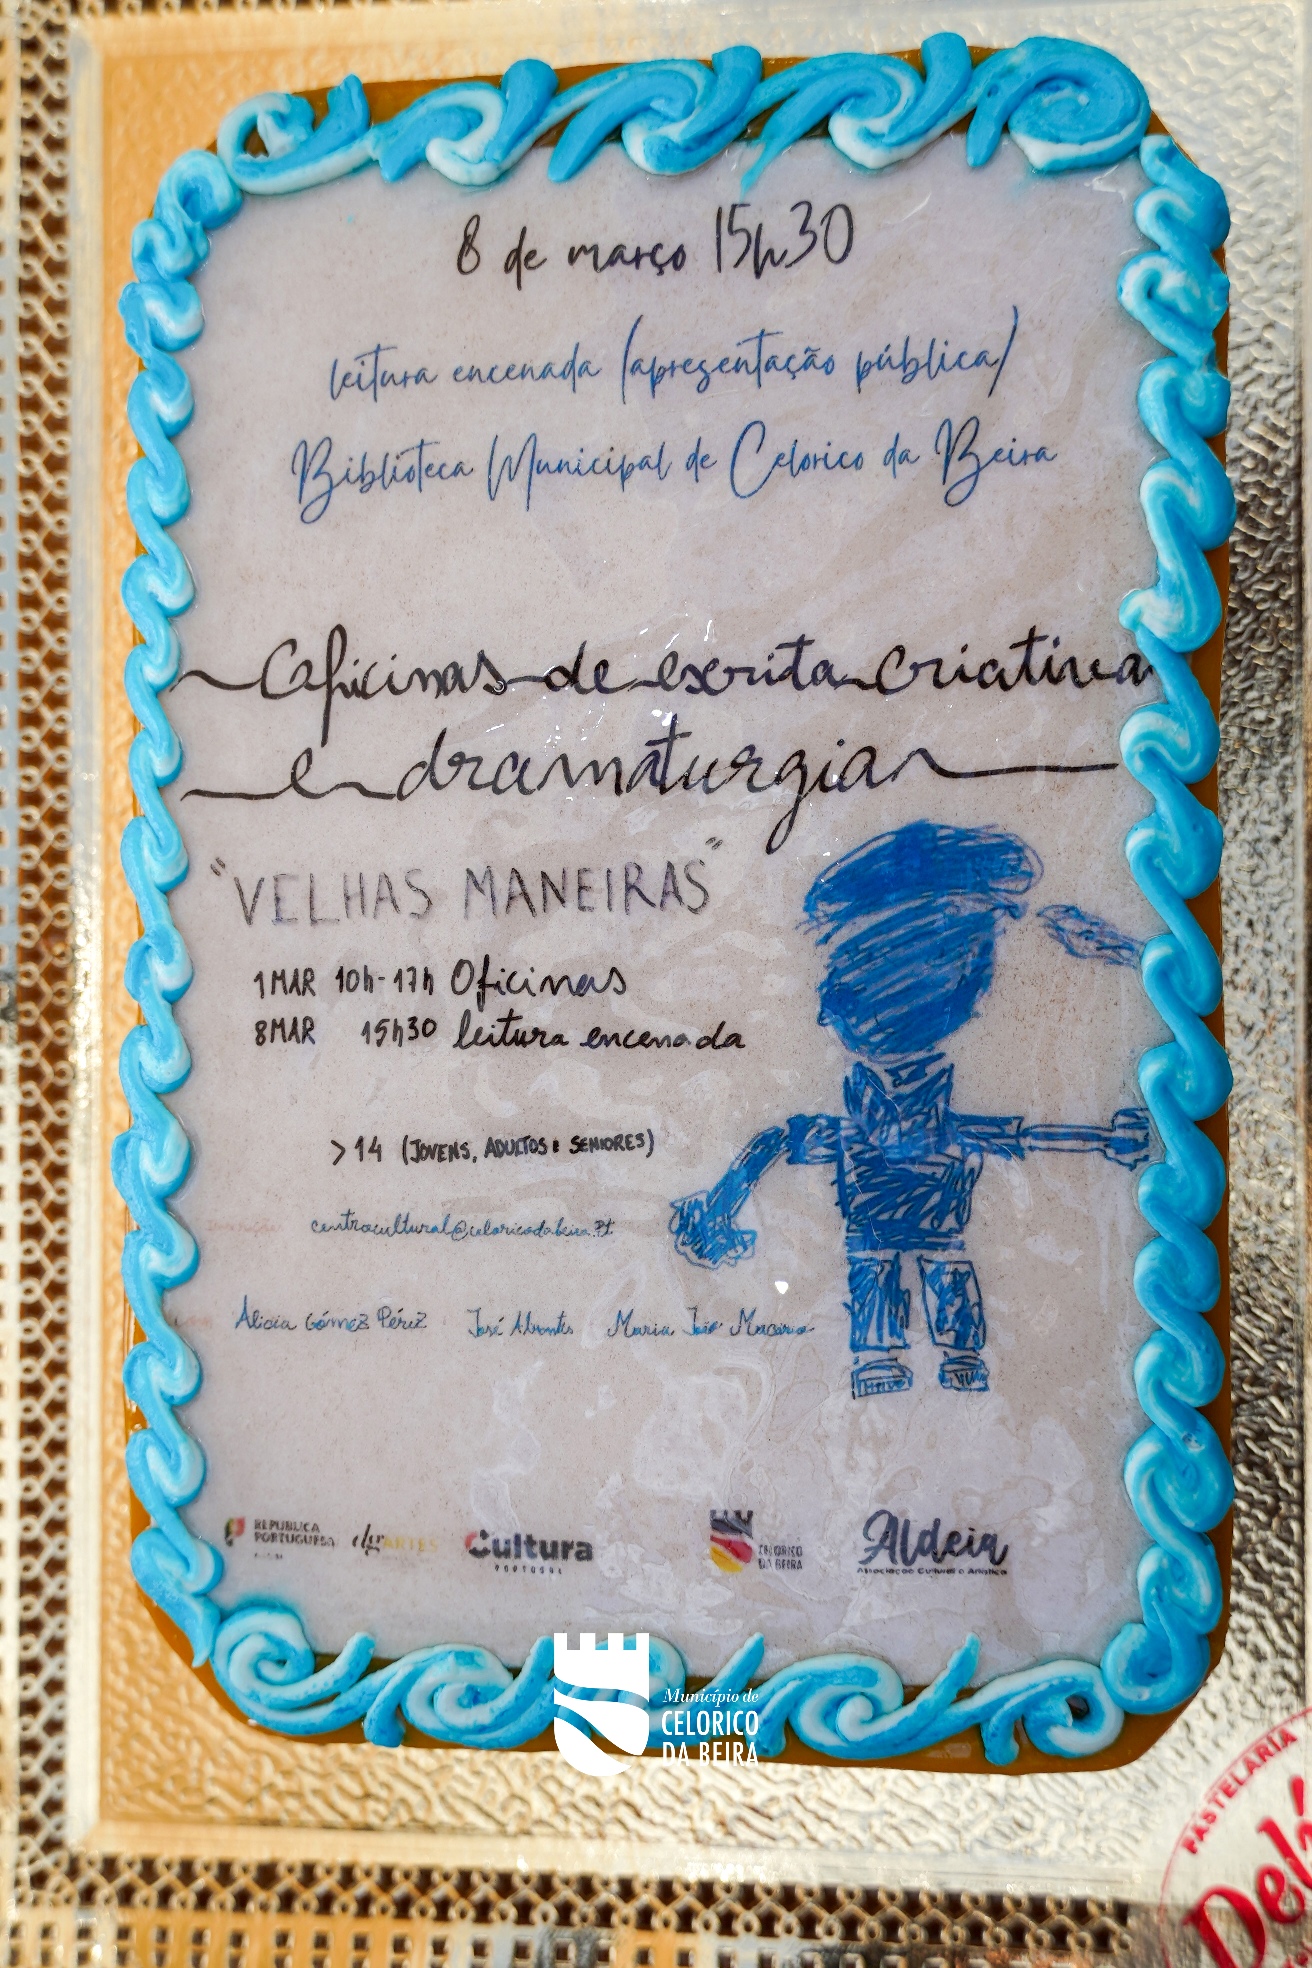 8 de março 15h30
leitura encenada (apresentação pública)
Biblioteca Municipal de Celorico da Beira
Oficinas de escrita criativa
e dramaturgia
"VELHAS MANEIRAS"
1 MAR 10h-17h Oficinas
8 MAR 15h30 leitura encenada
>14 (JOVENS, ADULTOS E SENIORES)
centrocultural@celoricodabeira.pt
Alicia Gómez Pérez José Abrantes Maria João Macário
REPÚBLICA
PORTUGUESA
dgARTES
Cultura
PORTUGAL
CELORICO
DA BEIRA
Aldeia
Associação Cultural e Artística
Município de
CELORICO
DA BEIRA
PASTELARIA